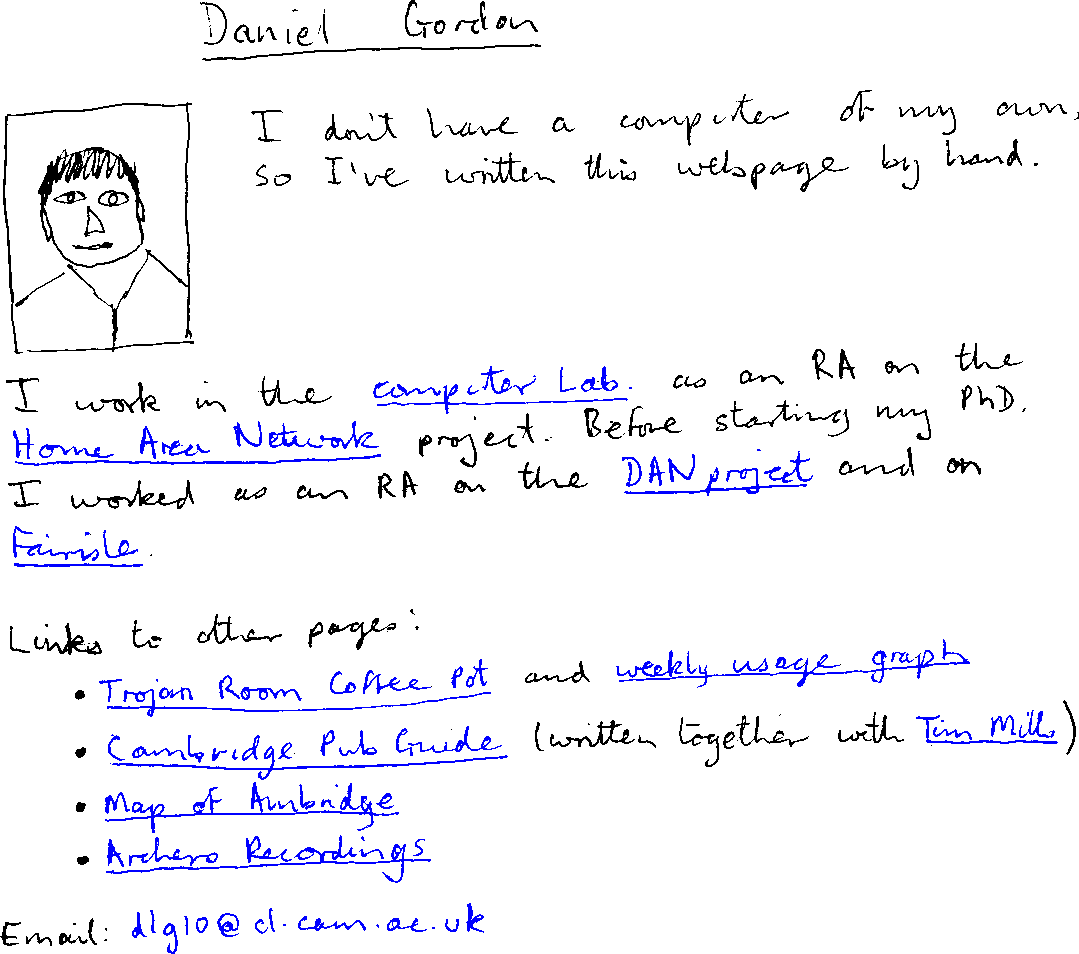 Daniel Gordon
I don't have a computer of my own,
so I've written this webpage by hand.
I work in the Computer Lab. as an RA on the
Home Area Network project. Before starting my PhD,
I worked as an RA on the DAN project and on
Fairisle.
Links to other pages:
• Trojan Room Coffee Pot and weekly usage graph
• Cambridge Pub Guide (written together with Tim Mills)
• Map of Ambridge
• Archers Recordings
Email: dlg10@cl.cam.ac.uk